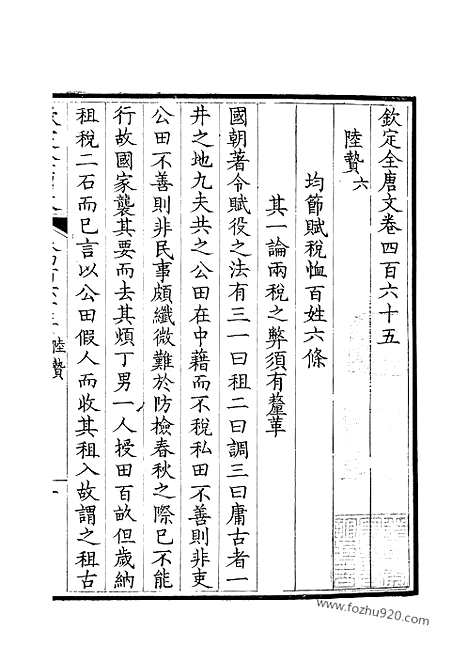 欽定全唐文卷四百六十五
陸贄六
均節賦稅恤百姓六條
其一論兩稅之弊須有釐革
國朝著令賦役之法有三一曰租二曰調三曰庸古者一
井之地九夫共之公田在中藉而不稅私田不善則非吏
公田不善則非民事頗纖微難於防檢春秋之際已不能
行故國家襲其要而去其煩丁男一人授田百畝但歲納
租稅二石而已言以公田假人而收其租入故謂之租古
陸贄
www.fozhu920.com